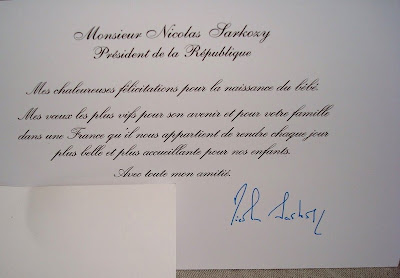 Monsieur Nicolas Sarkozy
Président de la République
Mes chaleureuses félicitations pour la naissance du bébé.
Mes vœux les plus vifs pour son avenir et pour votre famille
dans une France qu'il nous appartient de rendre chaque jour
plus belle et plus accueillante pour nos enfants.
Avec toute mon amitié.
Nicolas Sarkozy